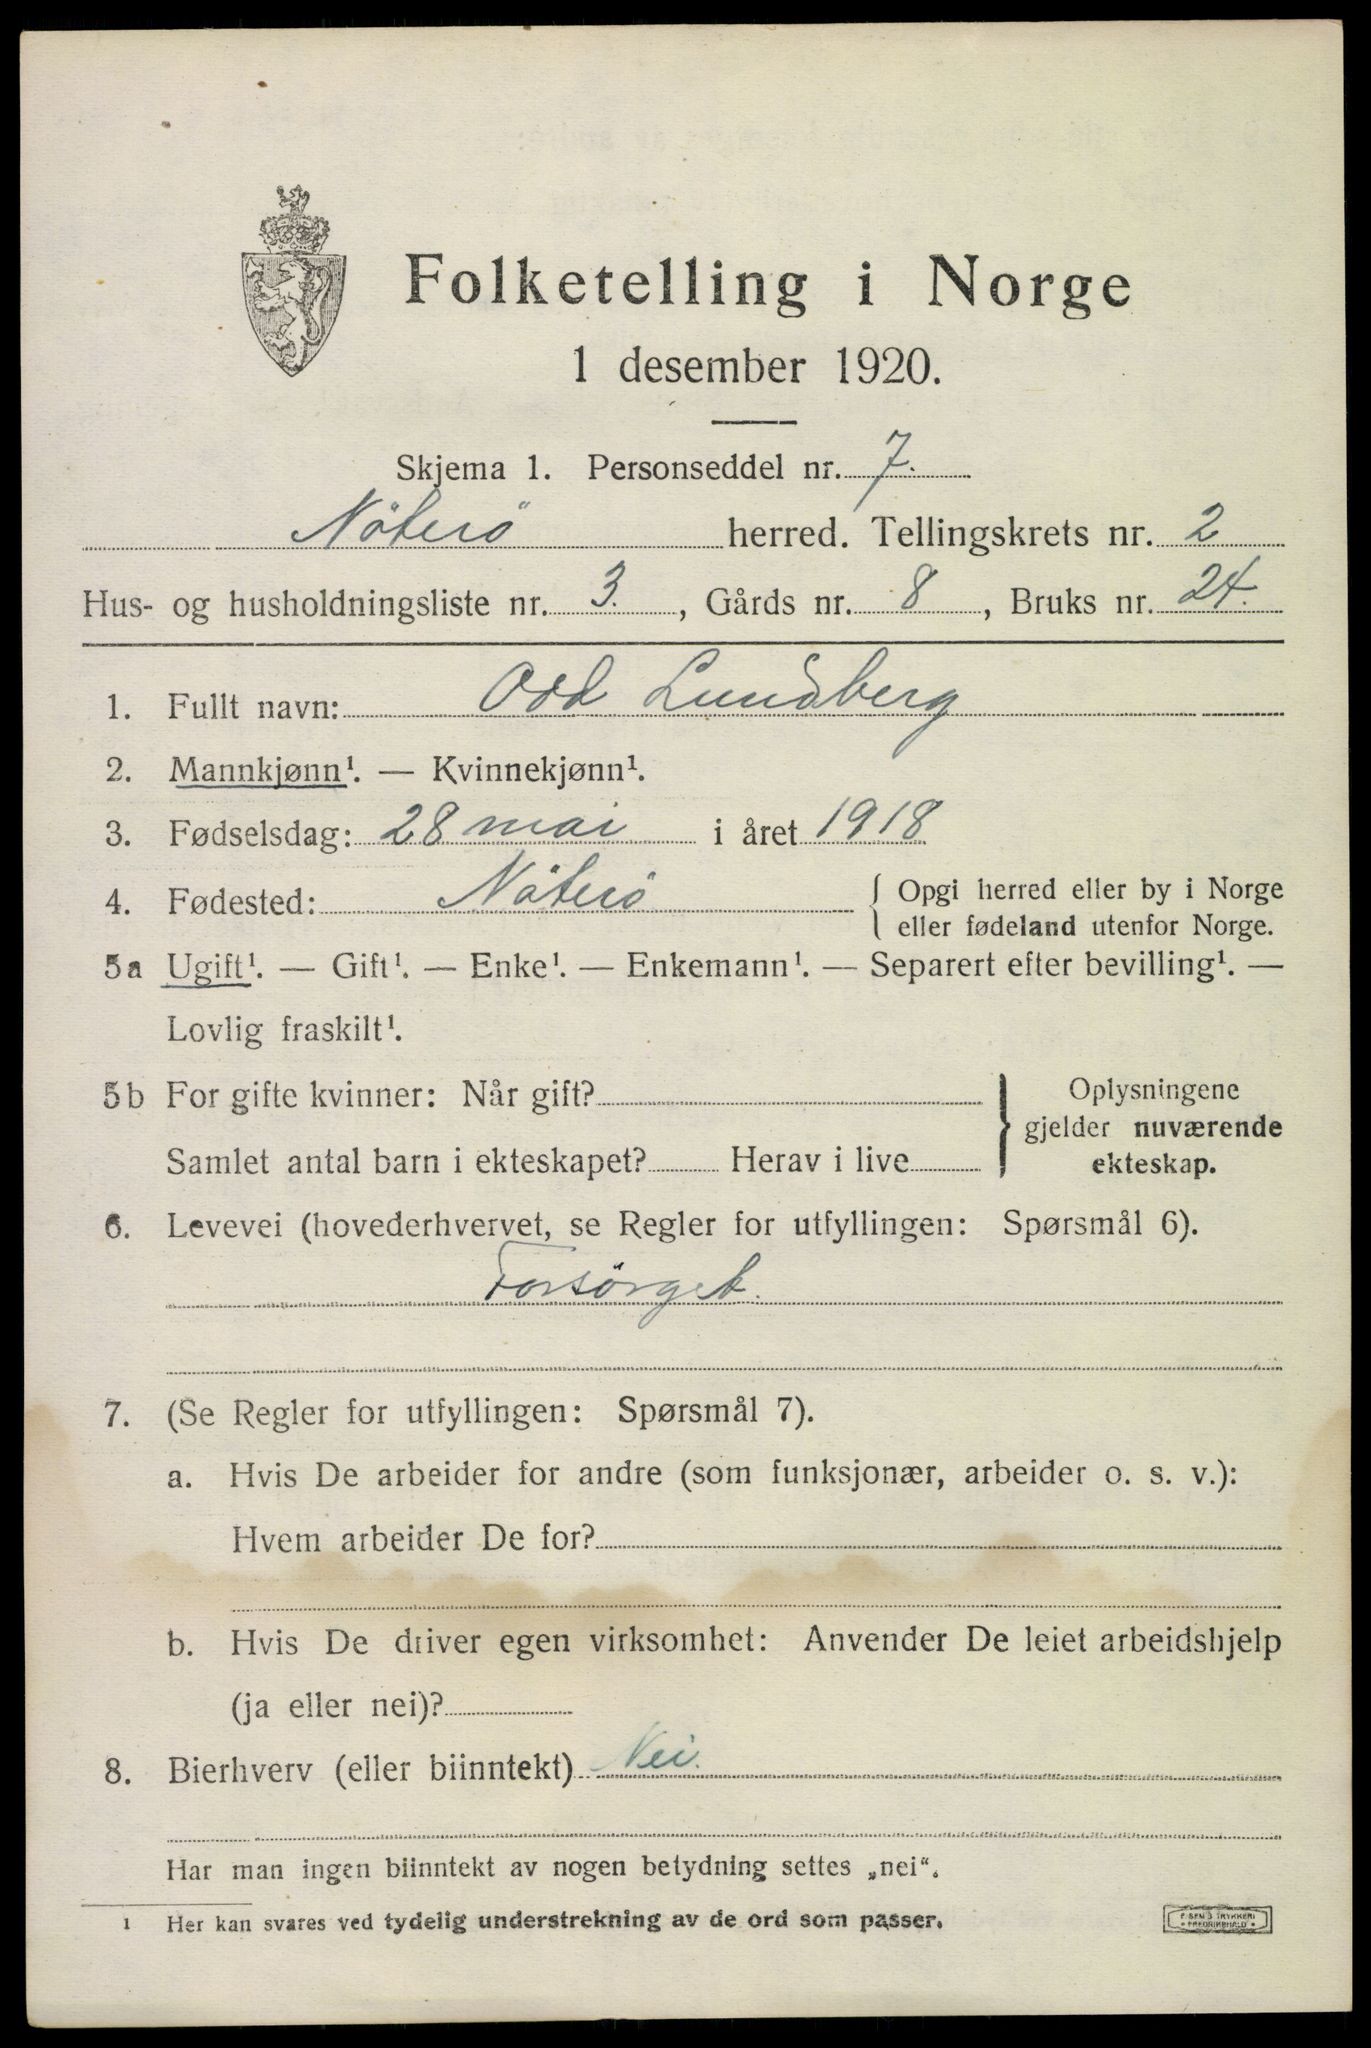 Folketelling i Norge
1 desember 1920.
Skjema 1. Personseddel nr. 7.
Nöterö herred. Tellingskrets nr. 2
Hus- og husholdningsliste nr. 3. , Gårds nr. 8 , Bruks nr. 24.
1. Fullt navn: Odd Lundberg
2. Mannkjønn¹. — Kvinnekjønn¹.
3. Fødselsdag: 28 mai i året 1918
4. Fødested: Nöterö { Opgi herred eller by i Norge
eller fødeland utenfor Norge.
5a Ugift¹. — Gift¹. — Enke¹. — Enkemann¹. — Separert efter bevilling¹. —
Lovlig fraskilt¹.
5b For gifte kvinner: Når gift?
Samlet antal barn i ekteskapet? Herav i live
} Oplysningene
gjelder nuværende
ekteskap.
6. Levevei (hovederhvervet, se Regler for utfyllingen: Spørsmål 6).
Forsörget.
7. (Se Regler for utfyllingen: Spørsmål 7).
a. Hvis De arbeider for andre (som funksjonær, arbeider o. s. v.):
Hvem arbeider De for?
b. Hvis De driver egen virksomhet: Anvender De leiet arbeidshjelp
(ja eller nei)?
8. Bierhverv (eller biinntekt) Nei.
Har man ingen biinntekt av nogen betydning settes „nei“.
¹ Her kan svares ved tydelig understrekning av de ord som passer.
TRYKKERI
FREDRIKSHALD